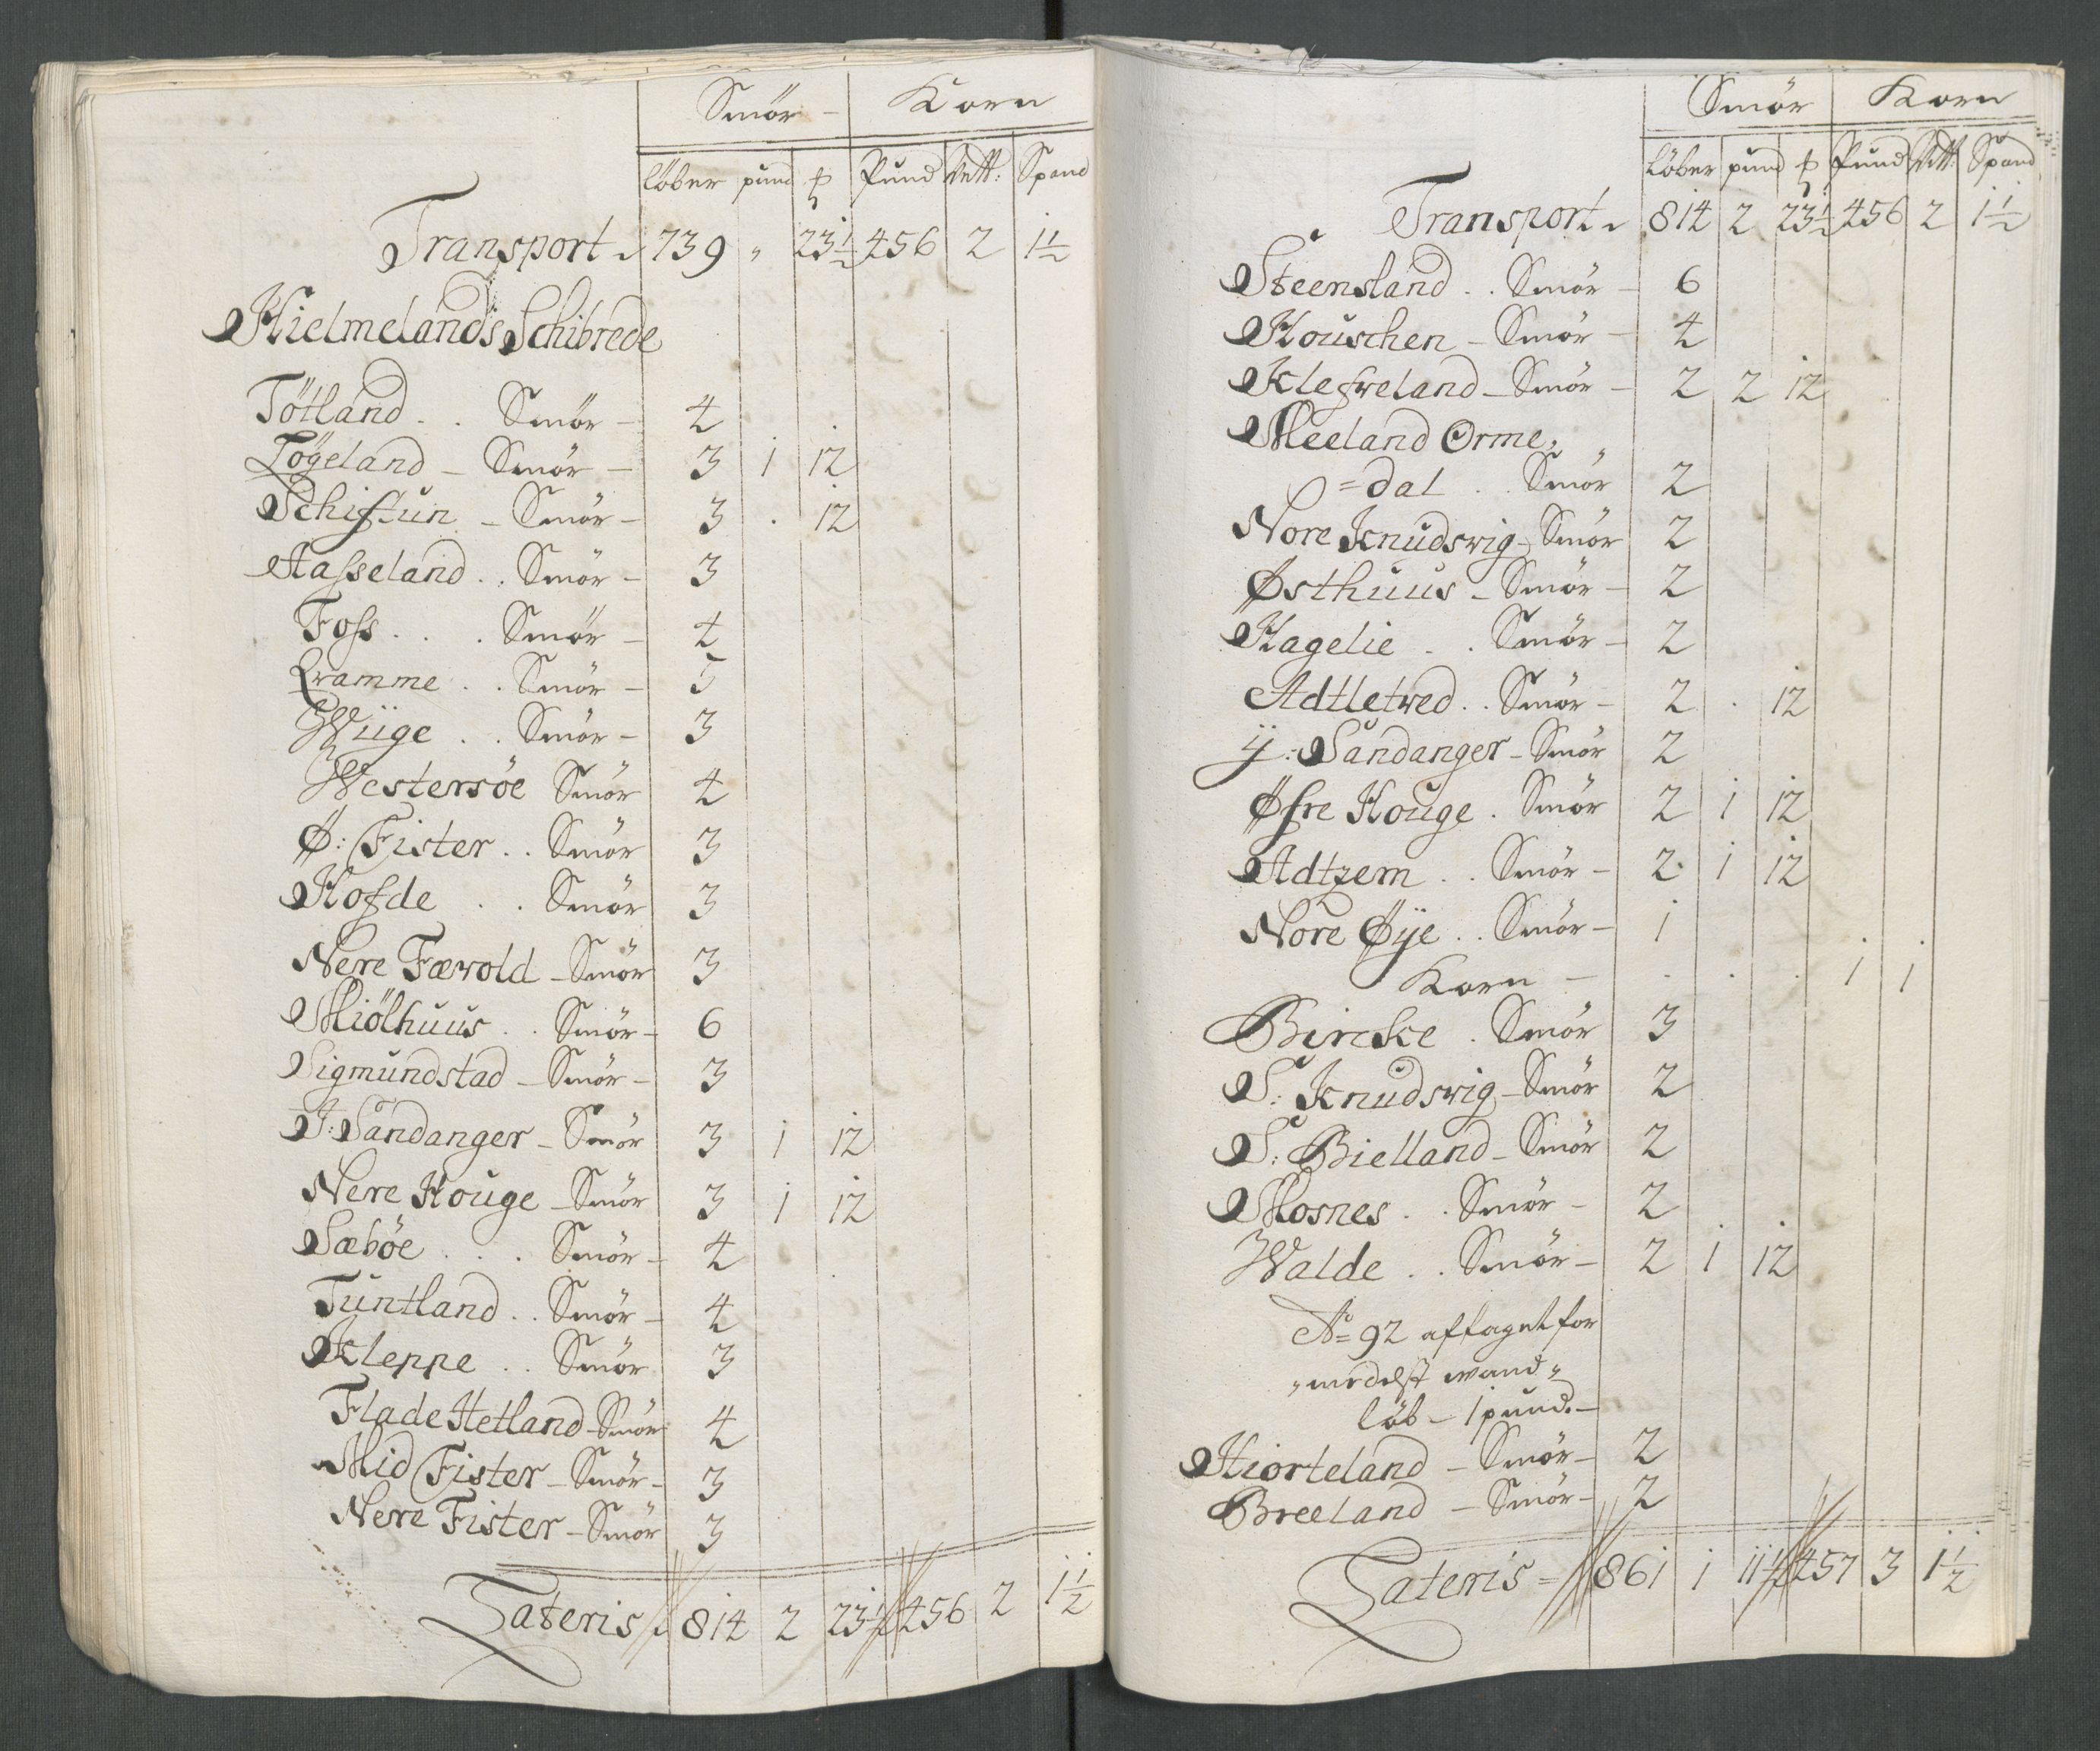 Smör - Korn
löber pund ℔ Pund Vett: Spand
Transport 739 " 23½ 456 2 1½
Hielmelands Schibrede
Tötland . . Smör - 4
Tögeland - Smör - 3 1 12
Schiftun - Smör - 3 . 12
Aasseland . . Smör - 3
Foss . . . Smör - 4
Qvamme . . Smör - 5
Wiige . . Smör - 3
Westersöe Smör 4
Ø: Fister . . Smör 3
Hofde . . Smör 3
Nere Færvold - Smör 3
Miölhuus . . Smör - 6
Sigmundstad - Smör - 3
I: Sandanger - Smör 3 1 12
Nere Houge - Smör 3 1 12
Sæböe . . . Smör - 4
Tuntland . . Smör - 4
Kleppe . . Smör 3
Flade Hetland - Smör 4
Mid Fister - Smör - 3
Nere Fister - Smör 3
Lateris 814 2 23½ 456 2 1½
Smör Korn
löber pund ℔ Pund Vett: Spand
Transport 814 2 23½ 456 2 1½
Steensland . . Smör - 6
Houschen - Smör - 4
Klefveland - Smör - 2 2 12
Meeland Orme,
= dal . . Smör 2
Nore Knudsvig - Smör 2
Østhuus - Smör - 2
Hagelie . . Smör - 2
Adtletved . . Smör - 2 . 12
ÿ: Sandanger - Smör 2
Øfre Houge . Smör 2 1 12
Adtzem . . Smör - 2 1 12
Nore Øÿe . . Smör - 1
Korn - . . . 1 1
Bircke . Smör 3
S: Knudsvig - Smör 2
S: Bielland - Smör 2
Mosnes . . Smör - 2
Walde . . Smör - 2 1 12
Aº 92 aftaget for
" medelst wand "
löb - 1 pund. -
Hiorteland - Smör - 2
Breeland - Smör - 2
Lateris = 861 1 11½ 457 3 1½